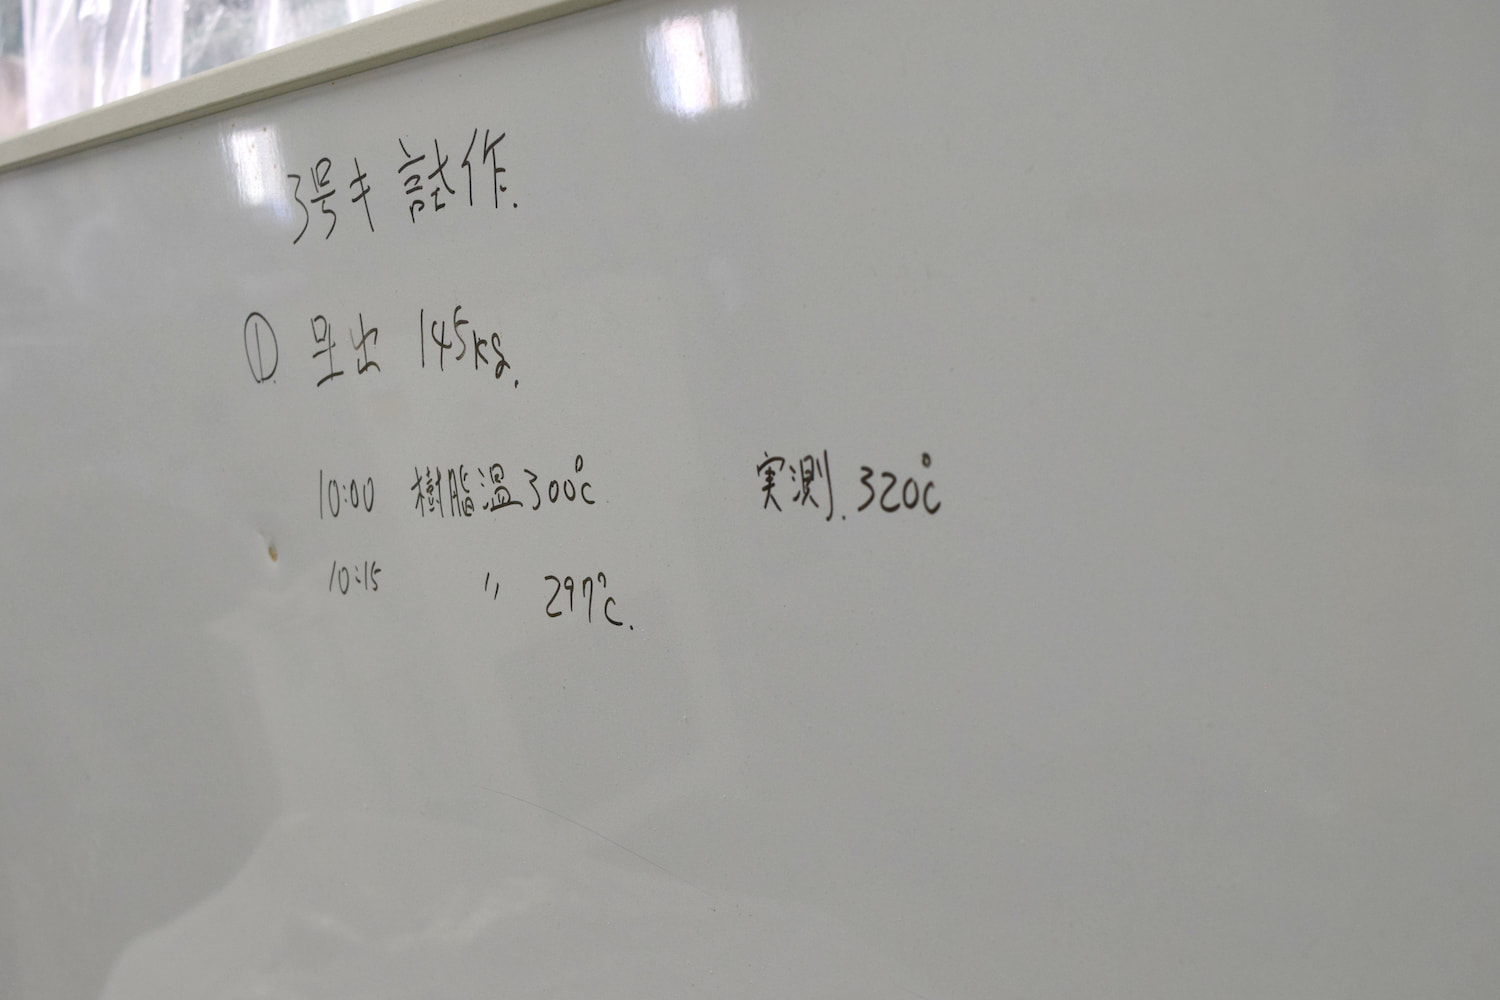 3号キ 試作.
① 呈出 145kg.
10:00 樹脂温 300℃ 実測. 320℃
10:15 〃 297℃.